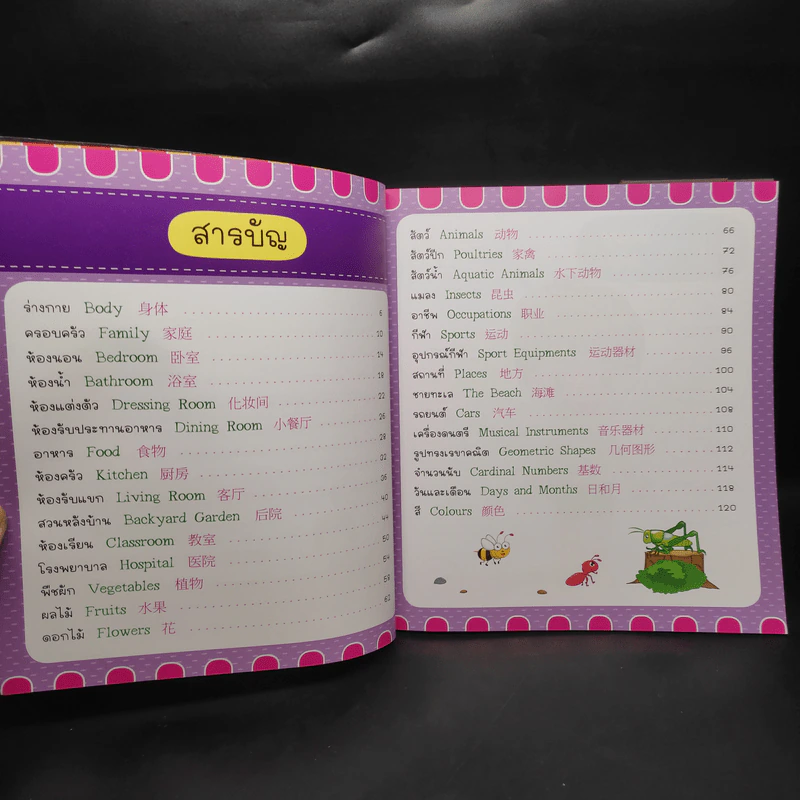 สารบัญ
ร่างกาย Body 身体 6
ครอบครัว Family 家庭 10
ห้องนอน Bedroom 卧室 14
ห้องน้ำ Bathroom 浴室 18
ห้องแต่งตัว Dressing Room 化妆间 22
ห้องรับประทานอาหาร Dining Room 小餐厅 26
อาหาร Food 食物
ห้องครัว Kitchen 厨房 32
ห้องรับแขก Living Room 客厅 36
สวนหลังบ้าน Backyard Garden 后院 40
ห้องเรียน Classroom 教室 44
โรงพยาบาล Hospital 医院 50
พืชผัก Vegetables 植物 54
ผลไม้ Fruits 水果 58
ดอกไม้ Flowers 花 62
สัตว์ Animals 动物 66
สัตว์ปีก Poultries 家禽 72
สัตว์น้ำ Aquatic Animals 水下动物 76
แมลง Insects 昆虫 80
อาชีพ Occupations 职业 84
กีฬา Sports 运动 90
อุปกรณ์กีฬา Sport Equipments 运动器材 96
สถานที่ Places 地方 100
ชายทะเล The Beach 海滩 104
รถยนต์ Cars 汽车 108
เครื่องดนตรี Musical Instruments 音乐器材 110
รูปทรงเรขาคณิต Geometric Shapes 几何图形 112
จำนวนนับ Cardinal Numbers 基数 114
วันและเดือน Days and Months 日和月 118
สี Colours 颜色 120